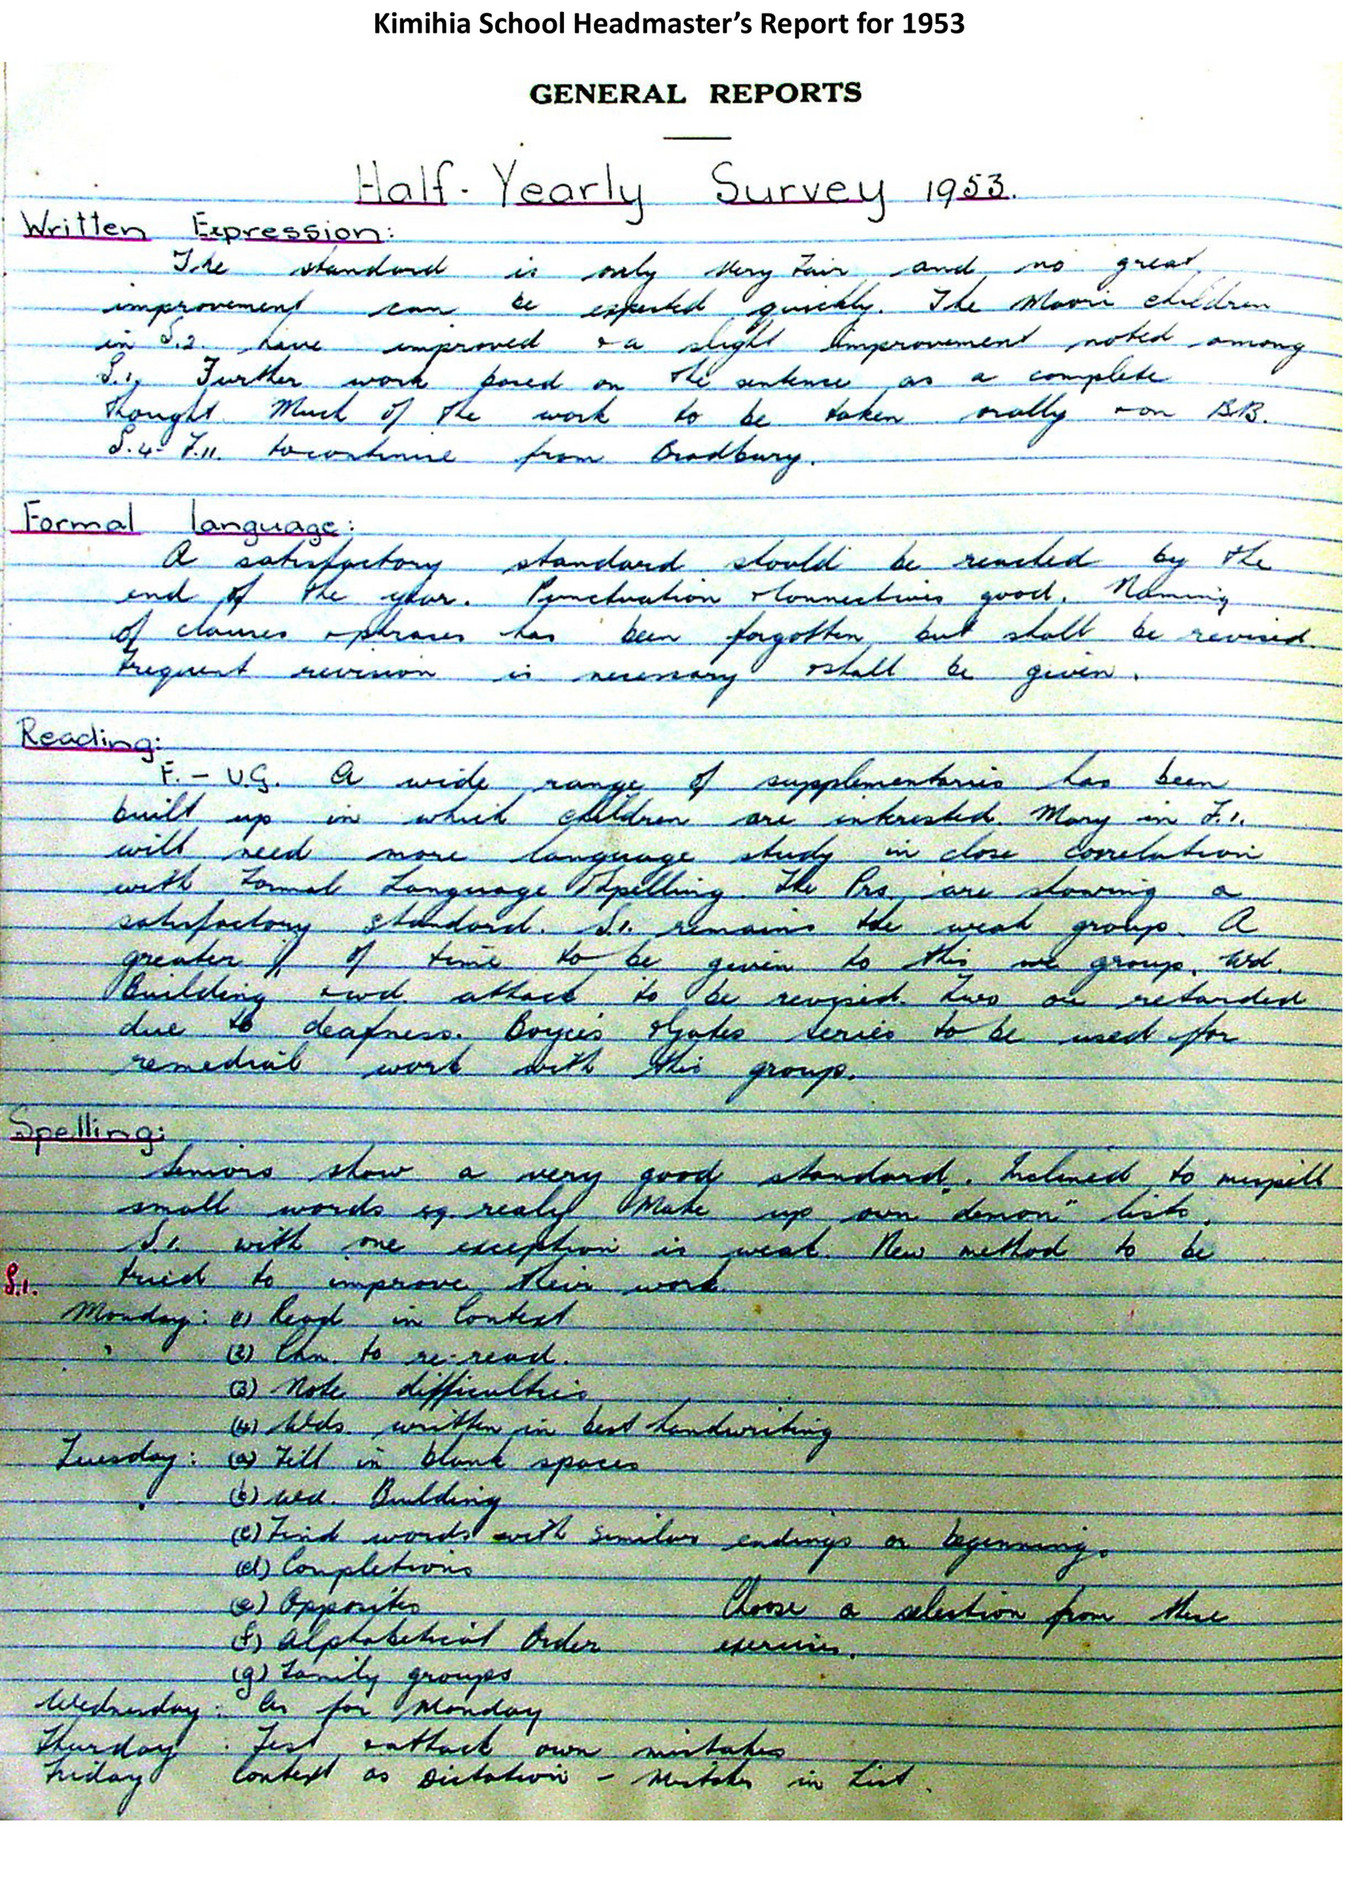 Kimihia School Headmaster's Report for 1953
GENERAL REPORTS
Half-Yearly Survey 1953.
Written Expression:
The standard is only very fair and no great
improvement can be expected quickly. The Maori children
in S.2. have improved & a slight improvement noted among
S.1. Further work based on the sentence as a complete
thought. Much of the work to be taken orally & on B.B.
S.4 - F.11. to continue from Bradbury.
Formal language:
A satisfactory standard should be reached by the
end of the year. Punctuation & Connectives good. Naming
of clauses & phrases has been forgotten but shall be revised.
Frequent revision is necessary & shall be given.
Reading:
F. - U.G. A wide range of supplementaries has been
built up in which children are interested. Mary in F.1.
will need more language study in close correlation
with Formal Language & Spelling. The Prs. are showing a
satisfactory standard. S.1. remains the weak group. A
greater of time to be given to this group. Wd.
Building & wd. attack to be revised. Two are retarded
due to deafness. Boyce's & Gates series to be used for
remedial work with this group.
Spelling:
Seniors show a very good standard. Inclined to misspell
small words eg. realy. Make up own "demon" lists.
S.1. with one exception is weak. New method to be
S.1. tried to improve their work.
Monday: (1) Read in Context
(2) Chn. to re-read.
(3) Note difficulties
(4) Wds. written in best handwriting
Tuesday: (a) Fill in blank spaces
(b) Wd. Building
(c) Find words with similar endings or beginnings.
(d) Completions
(e) Opposites Choose a selection from these
(f) Alphabetical Order exercises.
(g) Family groups
Wednesday: As for Monday
Thursday : Test & attack own mistakes
Friday Context as Dictation - Mistakes in List.